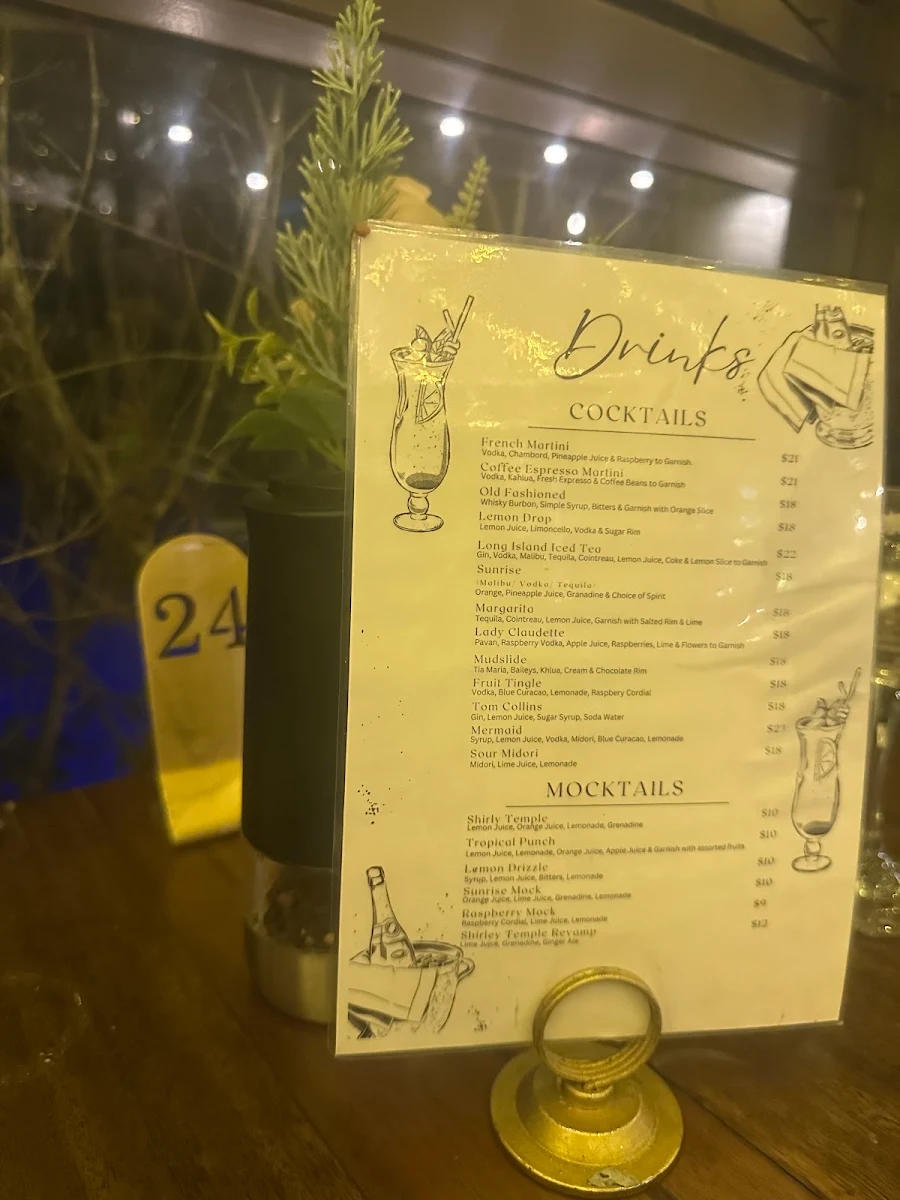 Drinks
COCKTAILS
French Martini $21
Vodka, Chambord, Pineapple Juice & Raspberry to Garnish.
Coffee Espresso Martini $21
Vodka, Kahlua, Fresh Expresso & Coffee Beans to Garnish
Old Fashioned $18
Whisky Burbon, Simple Syrup, Bitters & Garnish with Orange Slice
Lemon Drop $18
Lemon Juice, Limoncello, Vodka & Sugar Rim
Long Island Iced Tea $22
Gin, Vodka, Malibu, Tequila, Cointreau, Lemon Juice, Coke & Lemon Slice to Garnish
Sunrise $18
(Malibu/ Vodka/ Tequila)
Orange, Pineapple Juice, Granadine & Choice of Spirit
Margarita $18
Tequila, Cointreau, Lemon Juice, Garnish with Salted Rim & Lime
Lady Claudette $18
Pavan, Raspberry Vodka, Apple Juice, Raspberries, Lime & Flowers to Garnish
Mudslide $18
Tia Maria, Baileys, Khlua, Cream & Chocolate Rim
Fruit Tingle $18
Vodka, Blue Curacao, Lemonade, Raspbery Cordial
Tom Collins $18
Gin, Lemon Juice, Sugar Syrup, Soda Water
Mermaid $23
Syrup, Lemon Juice, Vodka, Midori, Blue Curacao, Lemonade
Sour Midori $18
Midori, Lime Juice, Lemonade
MOCKTAILS
Shirly Temple $10
Lemon Juice, Orange Juice, Lemonade, Grenadine
Tropical Punch $10
Lemon Juice, Lemonade, Orange Juice, Apple Juice & Garnish with assorted fruits
Lemon Drizzle $10
Syrup, Lemon Juice, Bitters, Lemonade
Sunrise Mock $10
Orange Juice, Lime Juice, Grenadine, Lemonade
Raspberry Mock $9
Raspberry Cordial, Lime Juice, Lemonade
Shirley Temple Revamp $12
Lime Juice, Grenadine, Ginger Ale
24